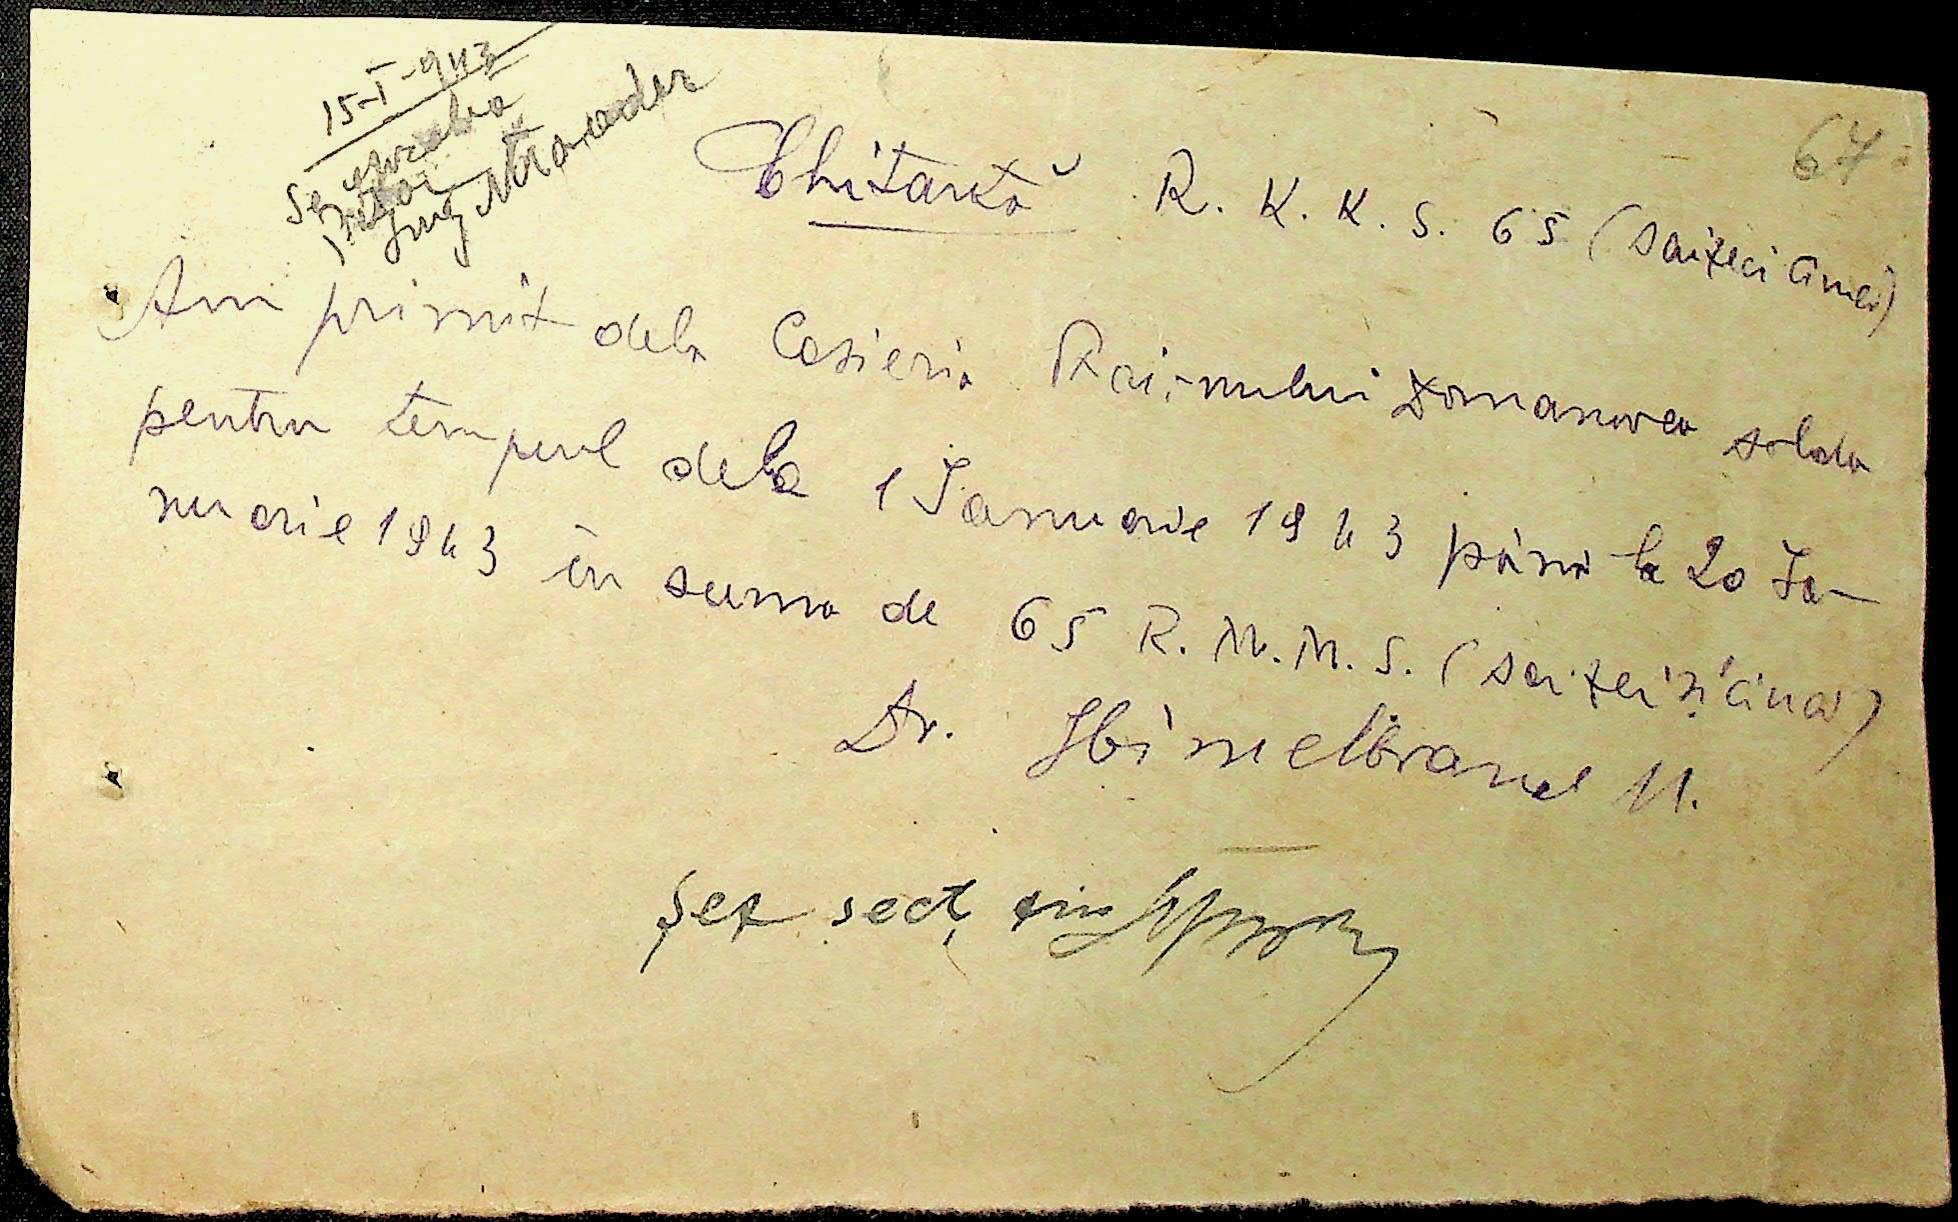 15-I-943
Se aproba
67
Chitanță R. K. K. S. 65 (șaizeci cinci)
Am primit dela Casieria Raionului Domanovca solda
pentru tempul dela 1 Ianuarie 1943 până la 20 Ia-
nuarie 1943 în suma de 65 R. M. M. S. (șaizeci și cinci)
Dr. Himelbrand M.
Șef sect.